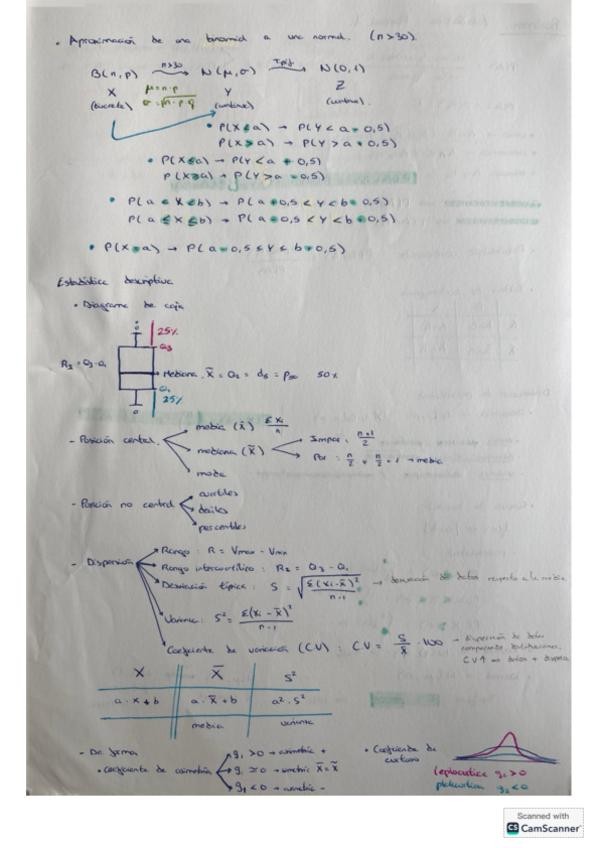 • Aproximación de una binomial a una normal. (n>30).
B(n,p) n>30 → N(μ,σ) Tipif → N(0,1)
X μ=n·p Y Z
(discreta) σ=√n·p·q (continua) (continua).
• P(X≤a) → P(Y<a-0,5)
P(X>a) → P(Y>a+0,5)
• P(X≤a) → P(Y<a+0,5)
P(X≥a) → P(Y>a-0,5)
• P(a<X<b) → P(a+0,5<Y<b-0,5)
P(a≤X≤b) → P(a-0,5<Y<b+0,5)
• P(X=a) → P(a-0,5≤Y≤b+0,5)
Estadística descriptiva
• Diagrama de caja
25%
Q3
R₂ = Q3-Q1
Mediana. X̃ = Q2 = d5 = P50 50%
Q1
25%
- Posición central.
media (x̄) Σxi/n
mediana (x̃)
Impar: n+1/2
Par: n/2 y n/2+1 → media
moda
- Posición no central
cuartiles
deciles
percentiles
- Dispersión
Rango: R = Vmax - Vmin
Rango intercuartílico: R₂ = Q3-Q1
Desviación típica: S = √Σ(xi-x̄)²/n-1 → desviación de datos respecto a la media
Varianza: S² = Σ(xi-x̄)²/n-1
Coeficiente de variación (CV): CV = S/x̄ · 100 → dispersión de datos
comparando distribuciones.
CV↑ → datos + dispersos
X X̄ S²
a·x+b a·x̄+b a²·S²
media varianza
- De forma
• Coeficiente de asimetría
g₁>0 → asimetría +
g₁≈0 → simetría x̄=x̃
g₁<0 → asimetría -
• Coeficiente de
curtosis
leptocúrtica g₂>0
platicúrtica g₂<0
Scanned with
CS CamScanner